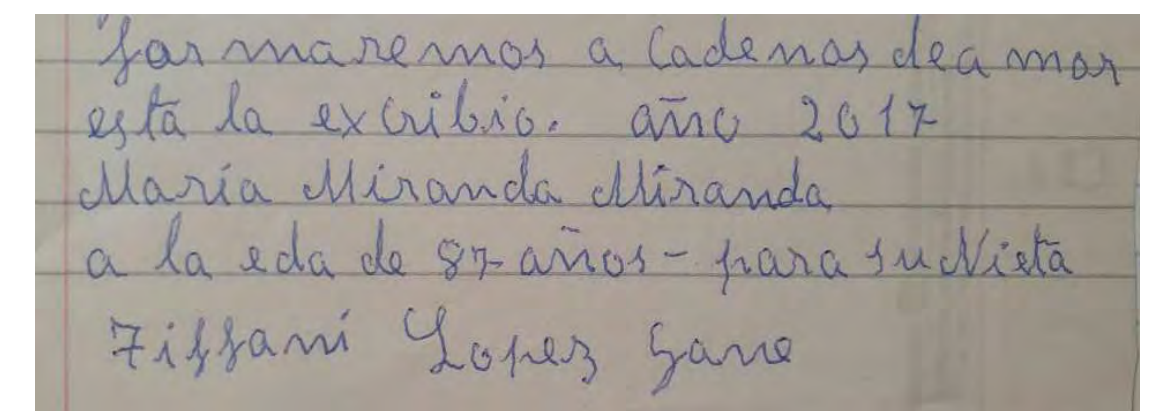 formaremos a Cadenas de amor
está la excribio. año 2017
María Miranda Miranda
a la eda de 87 años - para su Nieta
Tiffani Lopez